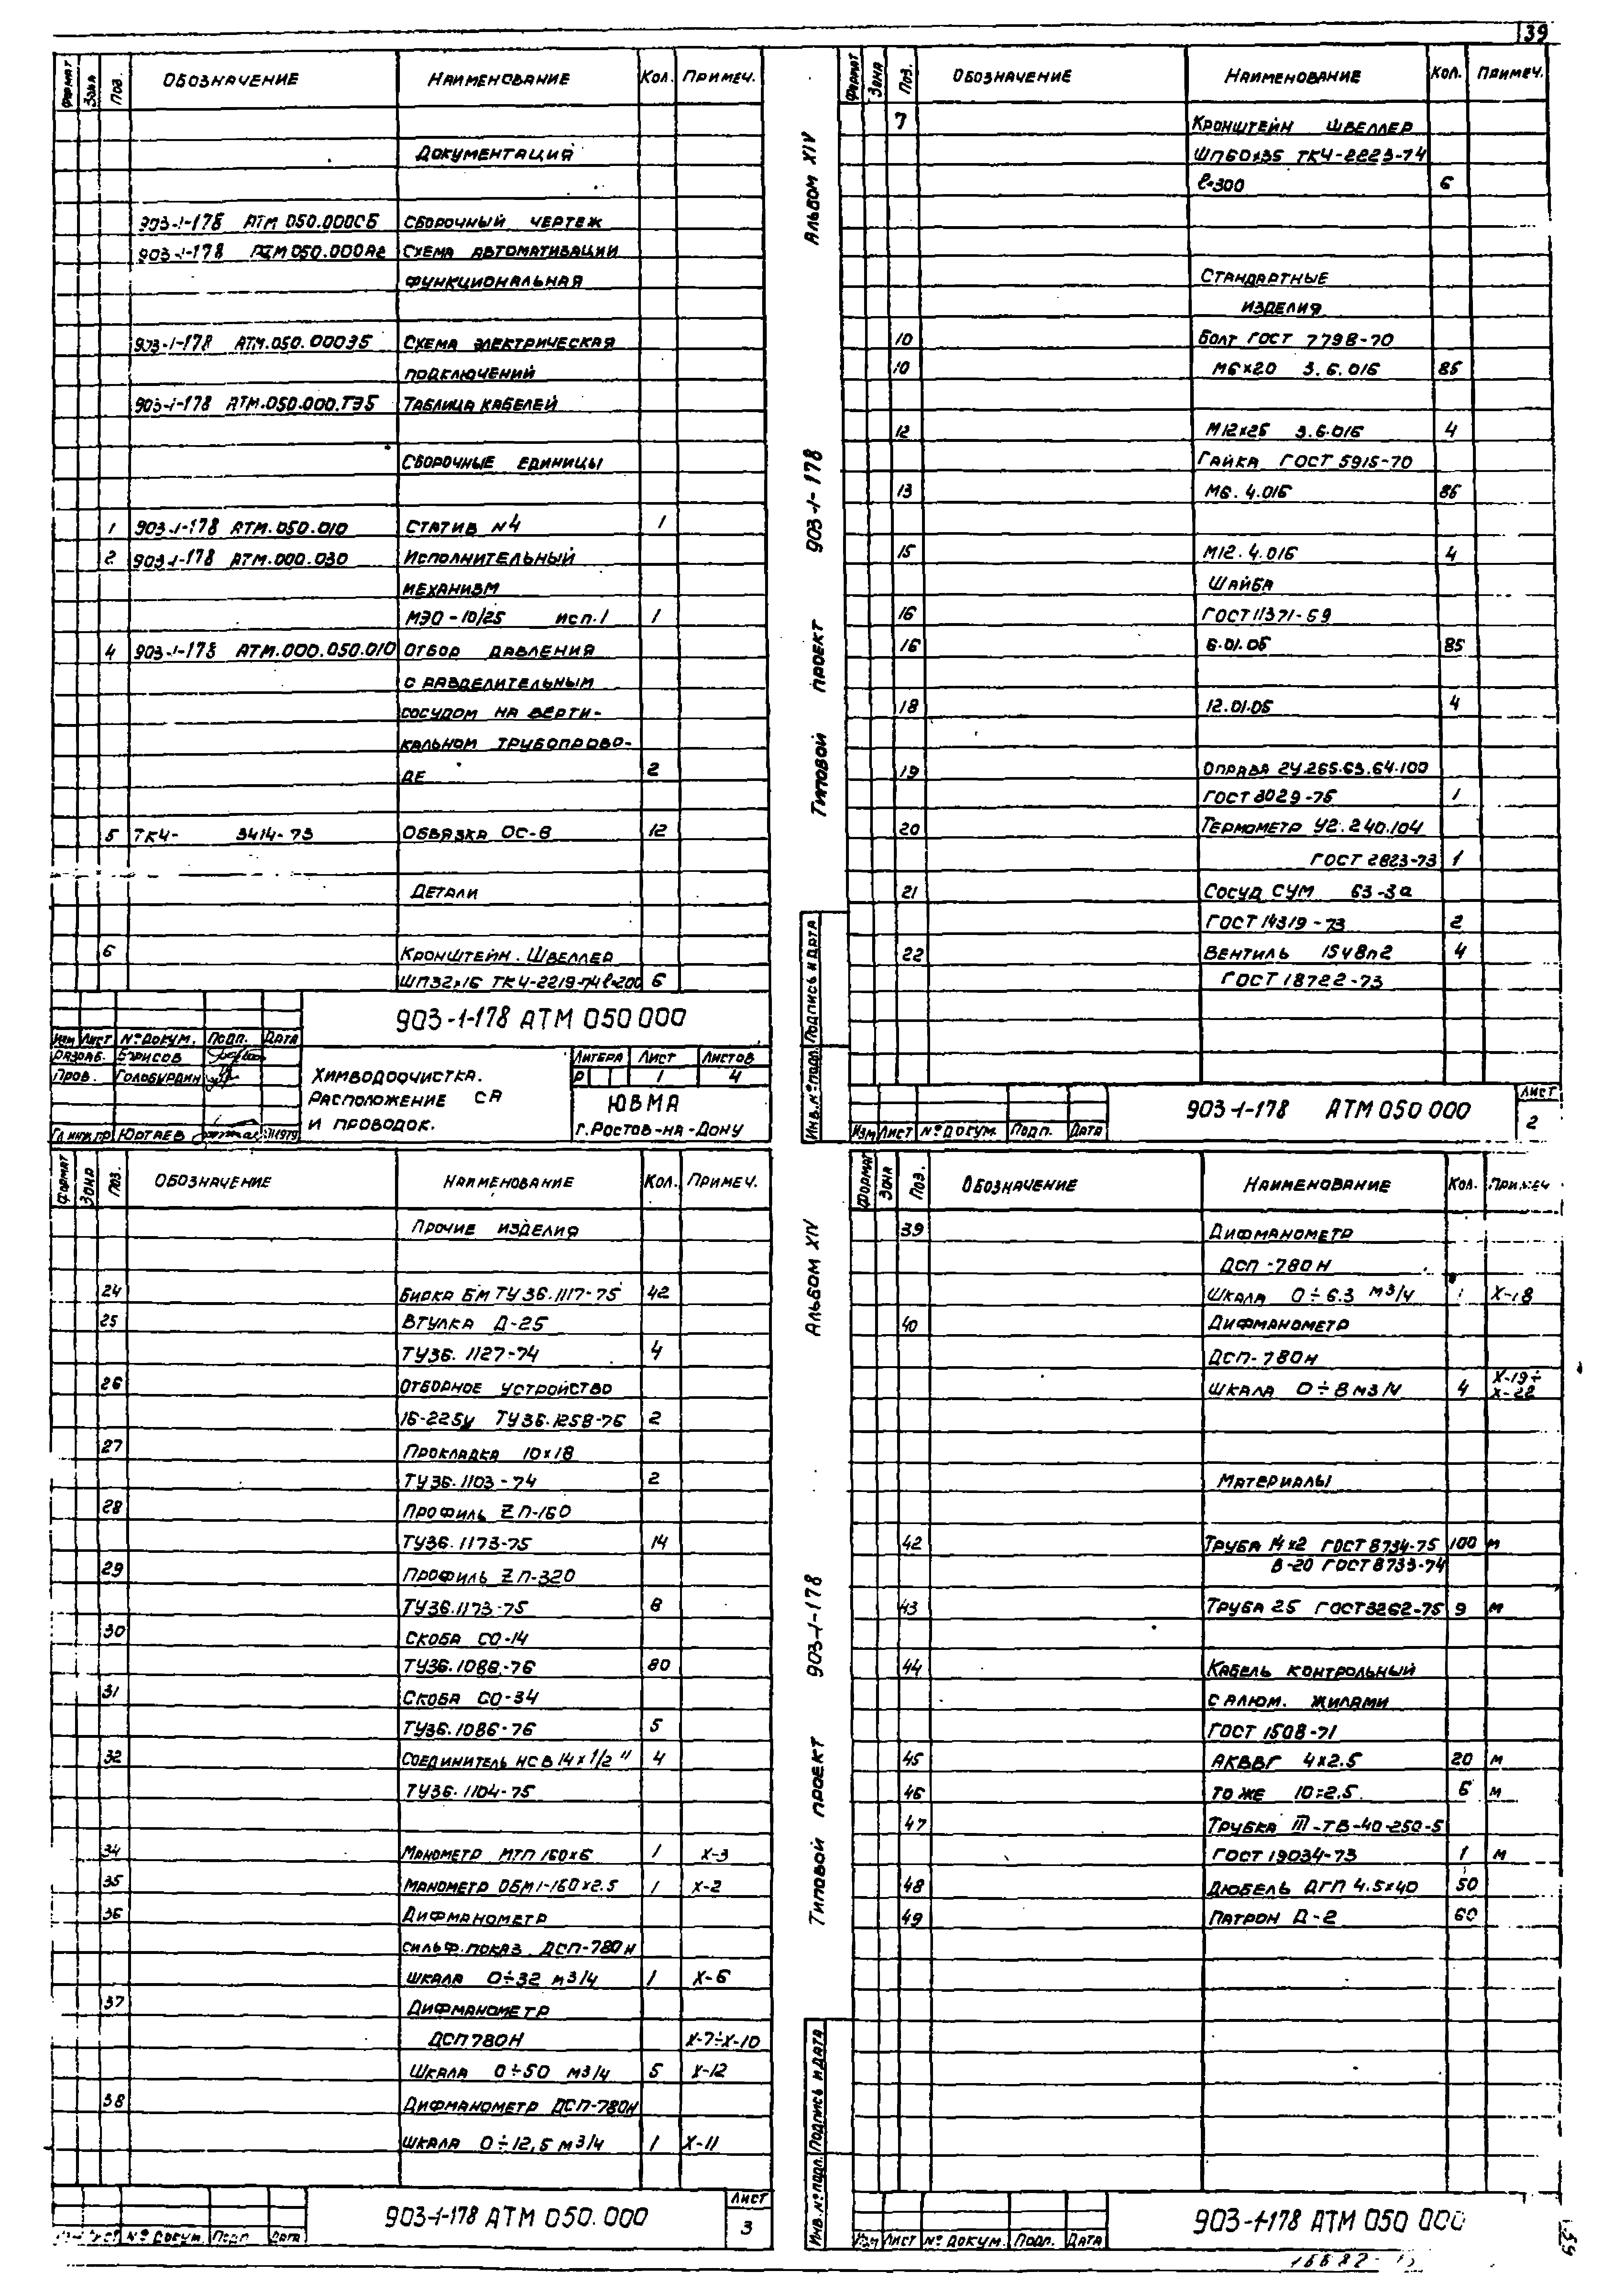 39
ФОРМАТ ЗОНА ПОЗ. ОБОЗНАЧЕНИЕ НАИМЕНОВАНИЕ КОЛ. ПРИМЕЧ.
ДОКУМЕНТАЦИЯ
903-1-178 АТМ 050.000СБ СБОРОЧНЫЙ ЧЕРТЕЖ
903-1-178 АТМ 050.000А2 СХЕМА АВТОМАТИЗАЦИИ
ФУНКЦИОНАЛЬНАЯ
903-1-178 АТМ.050.000Э5 СХЕМА ЭЛЕКТРИЧЕСКАЯ
ПОДКЛЮЧЕНИЙ
903-1-178 АТМ.050.000.ТЭ5 ТАБЛИЦА КАБЕЛЕЙ
СБОРОЧНЫЕ ЕДИНИЦЫ
1 903-1-178 АТМ.050.010 СТАТИВ N4 1
2 903-1-178 АТМ.000.030 ИСПОЛНИТЕЛЬНЫЙ
МЕХАНИЗМ
МЭО-10/25 ИСП.1 1
4 903-1-178 АТМ.000.050.010 ОТБОР ДАВЛЕНИЯ
С РАЗДЕЛИТЕЛЬНЫМ
СОСУДОМ НА ВЕРТИ-
КАЛЬНОМ ТРУБОПРОВО-
ДЕ 2
5 ТК4- 3414-73 ОБВЯЗКА ОС-8 12
ДЕТАЛИ
6 КРОНШТЕЙН. ШВЕЛЛЕР
ШП32х16 ТК4-2219-74 ℓ=200 6
903-1-178 АТМ 050 000
ИЗМ ЛИСТ № ДОКУМ. ПОДП. ДАТА
РАЗРАБ. БОРИСОВ
ПРОВ. ГОЛОБУРДИН
ГЛ.ИНЖ.ПР ЮРТАЕВ 1979
ХИМВОДООЧИСТКА.
РАСПОЛОЖЕНИЕ СА
И ПРОВОДОК.
ЛИТЕРА ЛИСТ ЛИСТОВ
Р 1 4
ЮВМА
Г. РОСТОВ-НА-ДОНУ
АЛЬБОМ XIV
903-1-178
ТИПОВОЙ ПРОЕКТ
ФОРМАТ ЗОНА ПОЗ. ОБОЗНАЧЕНИЕ НАИМЕНОВАНИЕ КОЛ. ПРИМЕЧ.
7 КРОНШТЕЙН ШВЕЛЛЕР
ШП60х35 ТК4-2223-74
ℓ=300 6
СТАНДАРТНЫЕ
ИЗДЕЛИЯ
10 БОЛТ ГОСТ 7798-70
10 М6×20 3.6.016 86
12 М12×25 3.6.016 4
ГАЙКА ГОСТ 5915-70
13 М6.4.016 86
15 М12.4.016 4
ШАЙБА
16 ГОСТ 11371-69
16 6.01.05 85
18 12.01.05 4
19 ОПРАВА 2У.265.63.64.100
ГОСТ 3029-75 1
20 ТЕРМОМЕТР У2.240.104
ГОСТ 2823-73 1
21 СОСУД СУМ 63-3а
ГОСТ 14319-73 2
22 ВЕНТИЛЬ 15ч8п2 4
ГОСТ 18722-73
ИНВ.№ ПОДЛ. ПОДПИСЬ И ДАТА
ИЗМ ЛИСТ № ДОКУМ. ПОДП. ДАТА
903-1-178 АТМ 050 000
ЛИСТ
2
ФОРМАТ ЗОНА ПОЗ. ОБОЗНАЧЕНИЕ НАИМЕНОВАНИЕ КОЛ. ПРИМЕЧ.
ПРОЧИЕ ИЗДЕЛИЯ
24 БИРКА БМ ТУ36.1117-75 42
25 ВТУЛКА Д-25
ТУ36.1127-74 4
26 ОТБОРНОЕ УСТРОЙСТВО
16-225У ТУ36.1258-76 2
27 ПРОКЛАДКА 10×18
ТУ36.1103-74 2
28 ПРОФИЛЬ ZП-160
ТУ36.1173-75 14
29 ПРОФИЛЬ ZП-320
ТУ36.1173-75 8
30 СКОБА СО-14
ТУ36.1086-76 80
31 СКОБА СО-34
ТУ36.1086-76 5
32 СОЕДИНИТЕЛЬ НСВ 14×1/2" 4
ТУ36.1104-75
34 МАНОМЕТР МТП 160×6 1 Х-3
35 МАНОМЕТР ОБМ1-160×2.5 1 Х-2
36 ДИФМАНОМЕТР
СИЛЬФ.ПОКАЗ. ДСП-780Н
ШКАЛА 0÷32 М3/Ч 1 Х-6
37 ДИФМАНОМЕТР
ДСП 780Н Х-7÷Х-10
ШКАЛА 0÷50 М3/Ч 5 Х-12
38 ДИФМАНОМЕТР ДСП-780Н
ШКАЛА 0÷12,5 М3/Ч 1 Х-11
№ ДОКУМ. ПОДП. ДАТА
903-1-178 АТМ 050.000
ЛИСТ
3
АЛЬБОМ XIV
903-1-178
ТИПОВОЙ ПРОЕКТ
ФОРМАТ ЗОНА ПОЗ. ОБОЗНАЧЕНИЕ НАИМЕНОВАНИЕ КОЛ. ПРИМЕЧ
39 ДИФМАНОМЕТР
ДСП-780Н
ШКАЛА 0÷6.3 М3/Ч 1 Х-18
40 ДИФМАНОМЕТР
ДСП-780Н
ШКАЛА 0÷8 М3/Ч 4 Х-19÷
Х-22
МАТЕРИАЛЫ
42 ТРУБА 14×2 ГОСТ 8734-75 100 М
В-20 ГОСТ 8733-74
43 ТРУБА 25 ГОСТ 3262-75 9 М
44 КАБЕЛЬ КОНТРОЛЬНЫЙ
С АЛЮМ. ЖИЛАМИ
ГОСТ 1508-71
45 АКВВГ 4×2.5 20 М
46 ТО ЖЕ 10×2.5 6 М
47 ТРУБКА III-ТВ-40-250-5
ГОСТ 19034-73 1 М
48 ДЮБЕЛЬ ДГП 4.5×40 50
49 ПАТРОН Д-2 60
ИНВ.№ ПОДЛ. ПОДПИСЬ И ДАТА
ИЗМ ЛИСТ № ДОКУМ. ПОДП. ДАТА
903-1-178 АТМ 050 000